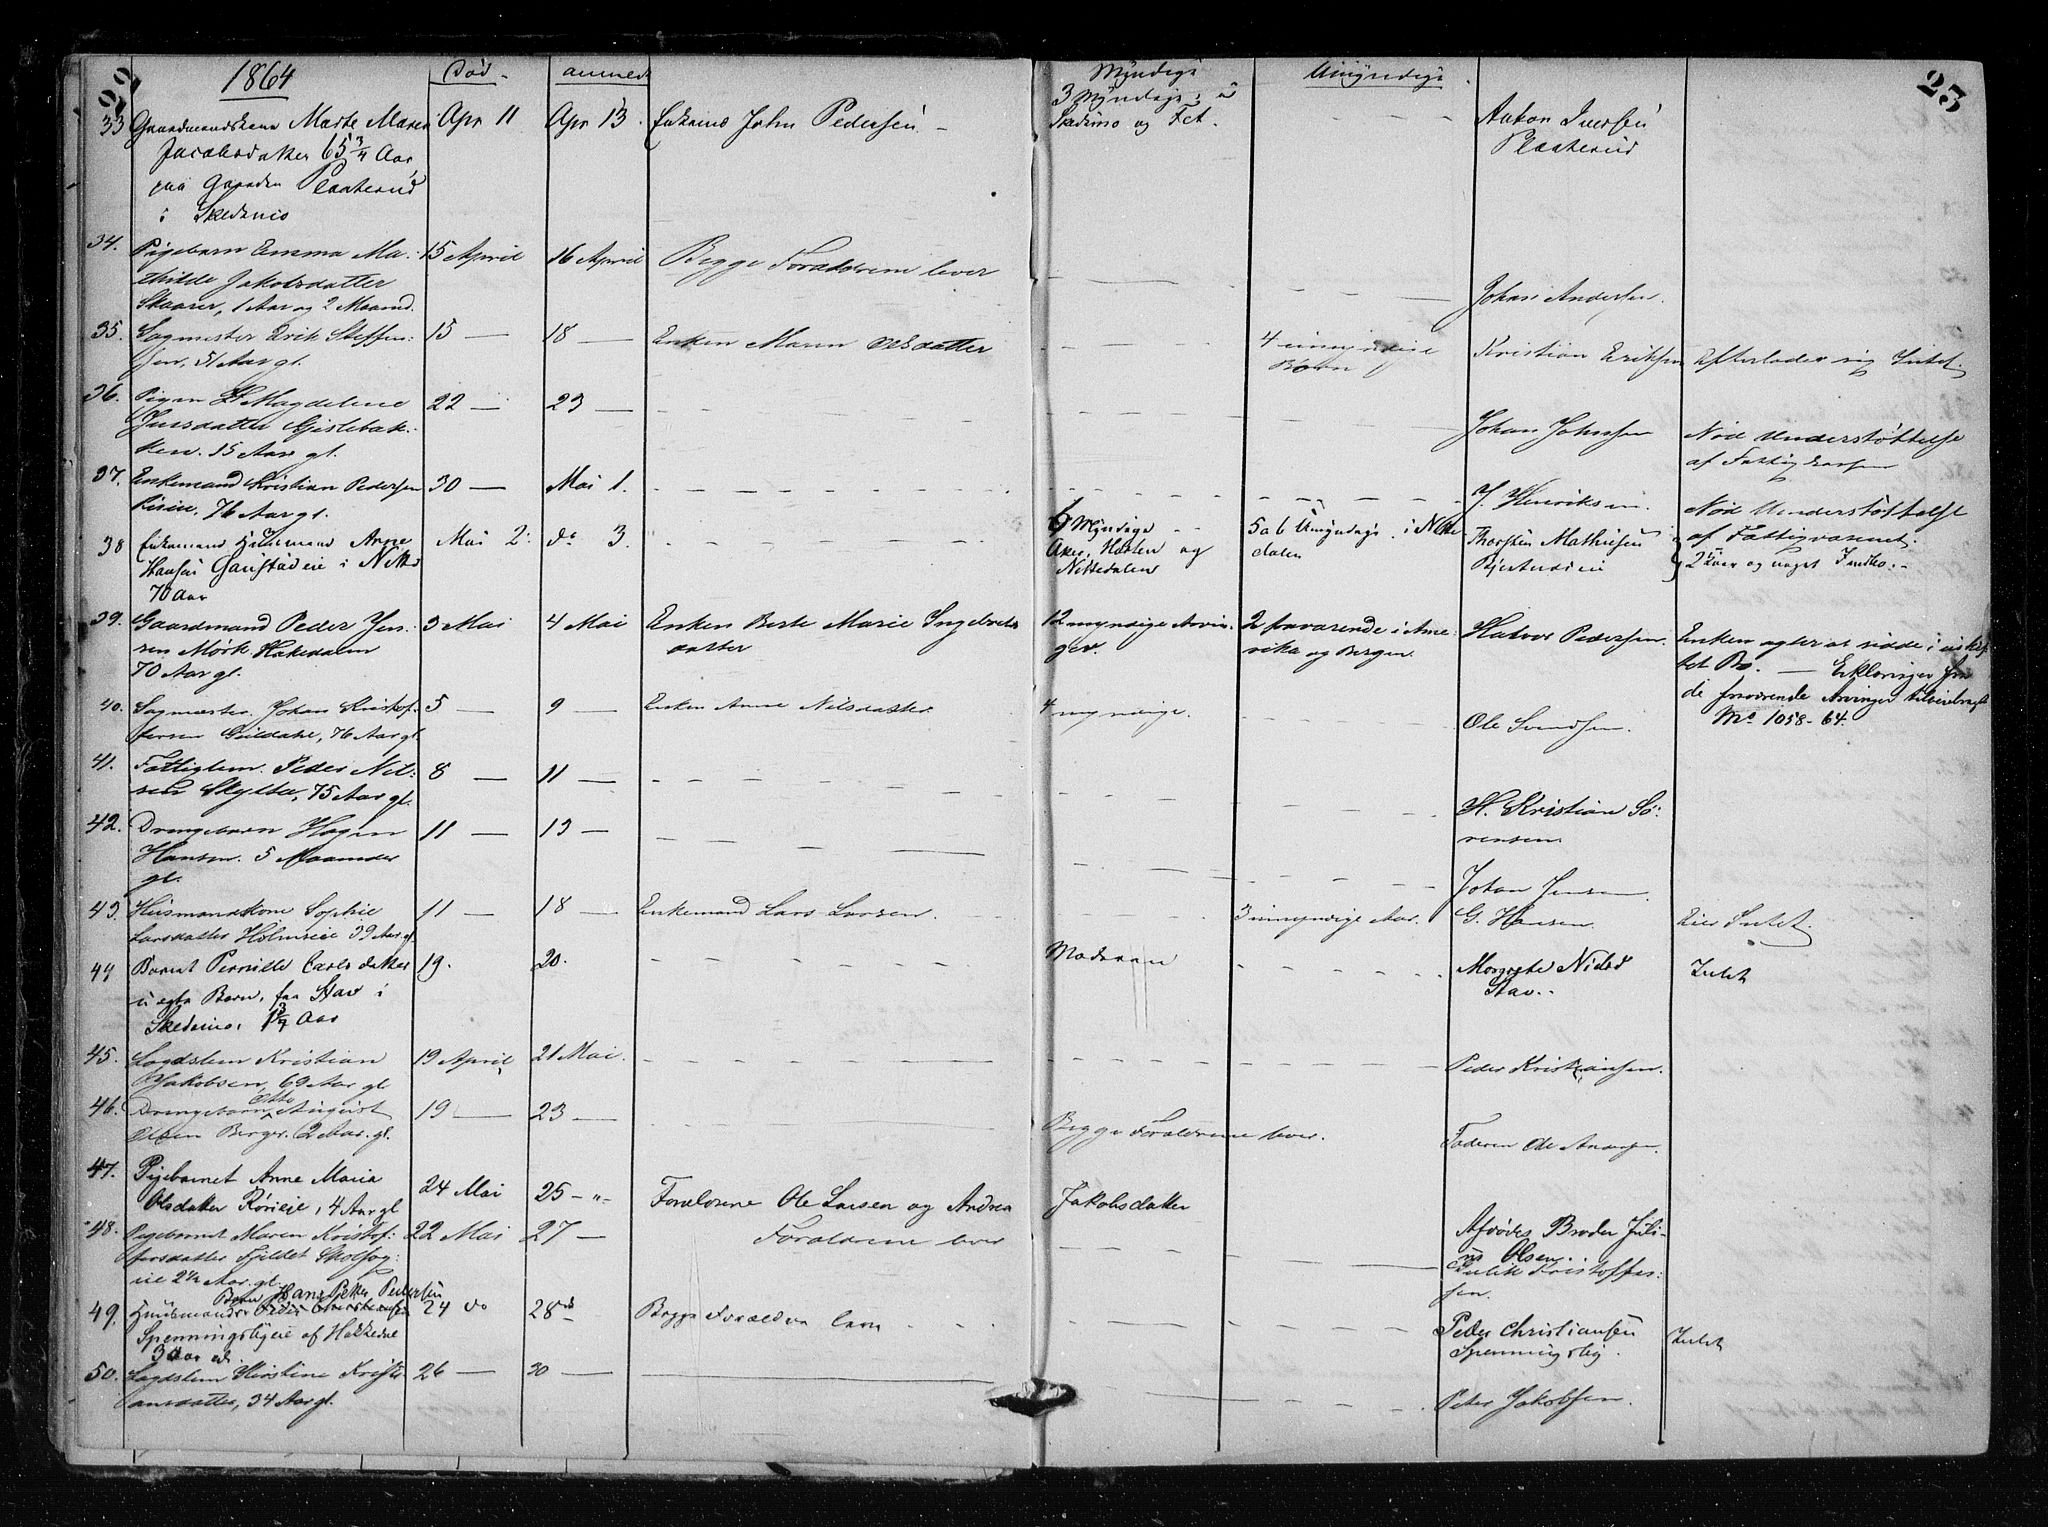 22
1864
Død
anmeldt
Myndige
Umyndige
23
33 Gaardmandskone Marte Maren
Jacobsdatter 65 3/4 Aar
paa Gaarden
i Skedsmo
Apr 11
Apr 13.
Enkemd John Pedersen
3 Myndige i
Skedsmo og Fet.
Anton Iversen
34. Pigebarn Emma Ma-
thilde Jakobsdatter
Skaarer, 1 Aar og 2 Maand.
15 April
16 April
Begge Forældrene lever
Johan Andersen.
35. Sagmester Erik Steffen-
sen, 51 Aar gl.
15 —
18 —
Enken Maren Olsdatter
4 umyndige
Børn
Kristian Eriksen
Efterlader sig Intet.
36. Pigen Magdelene
Jensdatter Gjislebak-
ken. 15 Aar gl.
22 —
23 —
Johan Johnsen
Nød Understøttelse
af Fattigkassen
37. Enkemand Kristian Pedersen
76 Aar gl.
30 —
Mai 1.
J. Henriksen.
Nød Understøttelse
af Fattigvæsenet.
38 Enkemand Husmand Arne
Hansen i Nitte
70 Aar
Mai 2.
do 3.
6 Myndige
Aker, Holten og
Nittedalen
5 a 6 Umyndige i Nitte
dalen
Thorsten Mathisen
2 Køer og noget Indbo.
39. Gaardmand Peder Jen-
sen Mork Hakedalen
70 Aar gl.
3 Mai
4 Mai
Enken Berte Marie Ingebrets
datter
12 myndige Arvin-
ger.
2 fraværende i Ame-
rika og Bergen.
Halvor Pedersen.
Enken agter at sidde i uskif-
tet Bo. — Erklæringer fra
de fraværende Arvinger tilveiebragt
No 1058-64.
40. Sagmester Johan Kristof-
fersen 76 Aar gl.
5 —
9 —
Enken Anne Nilsdatter
4 myndige.
Ole Svendsen.
41. Fattiglem Peder Nil-
sen Skytta, 75 Aar gl.
8 —
11 —
H. Kristian Sö-
rensen.
42. Drengebarn Hagen
Hansen. 5 Maaneder
gl.
11 —
13 —
Johan Jensen
43. Husmandskone Sophie
Larsdatter Holmseie 39 Aar gl
11 —
18 —
Enkemand Lars Larsen.
3 umyndige Aar.
G. Hansen.
Eier Intet.
44 Barnet Pernille Carlsdatter
uægte Barn, fra Stav i
Skedsmo, 1 3/4 Aar
19.
20.
Moderen
Margrete Nilsd
Stav.
Intet
45. Lagdslem Kristian
Jakobsen, 69 Aar gl
19 April
21 Mai.
Peder Kristiansen.
46. Drengebarn Otto August
Olsen Berger. 2 Aar gl.
19 —
23 —
Begge Forældrene lever.
Faderen Ole
47. Pigebarnet Anne Maria
Olsdatter Röiseie, 4 Aar gl
24 Mai
25 — " —
Forældrene Ole Larsen og Andrea Jakobsdatter
Afdødes Broder Juli-
us Olsen.
48. Pigebarnet Maren Kristof-
fersdatter Fjeldet
eie 2 1/2 Aar gl.
22 Mai
27 —
Forældrene lever
Kristoffer-
sen.
49. Husmands Peder Christiansen
Barn Hans Peter Pedersen
Spenningsbyeie af Hakkedal
3 Aar
24 do
28 do
Begge Forældre leve
Peder Christiansen
Intet
50. Lagdslem Kirstine Kristi
ansdatter, 34 Aar gl.
26 —
30 —
Peter Jakobsen.